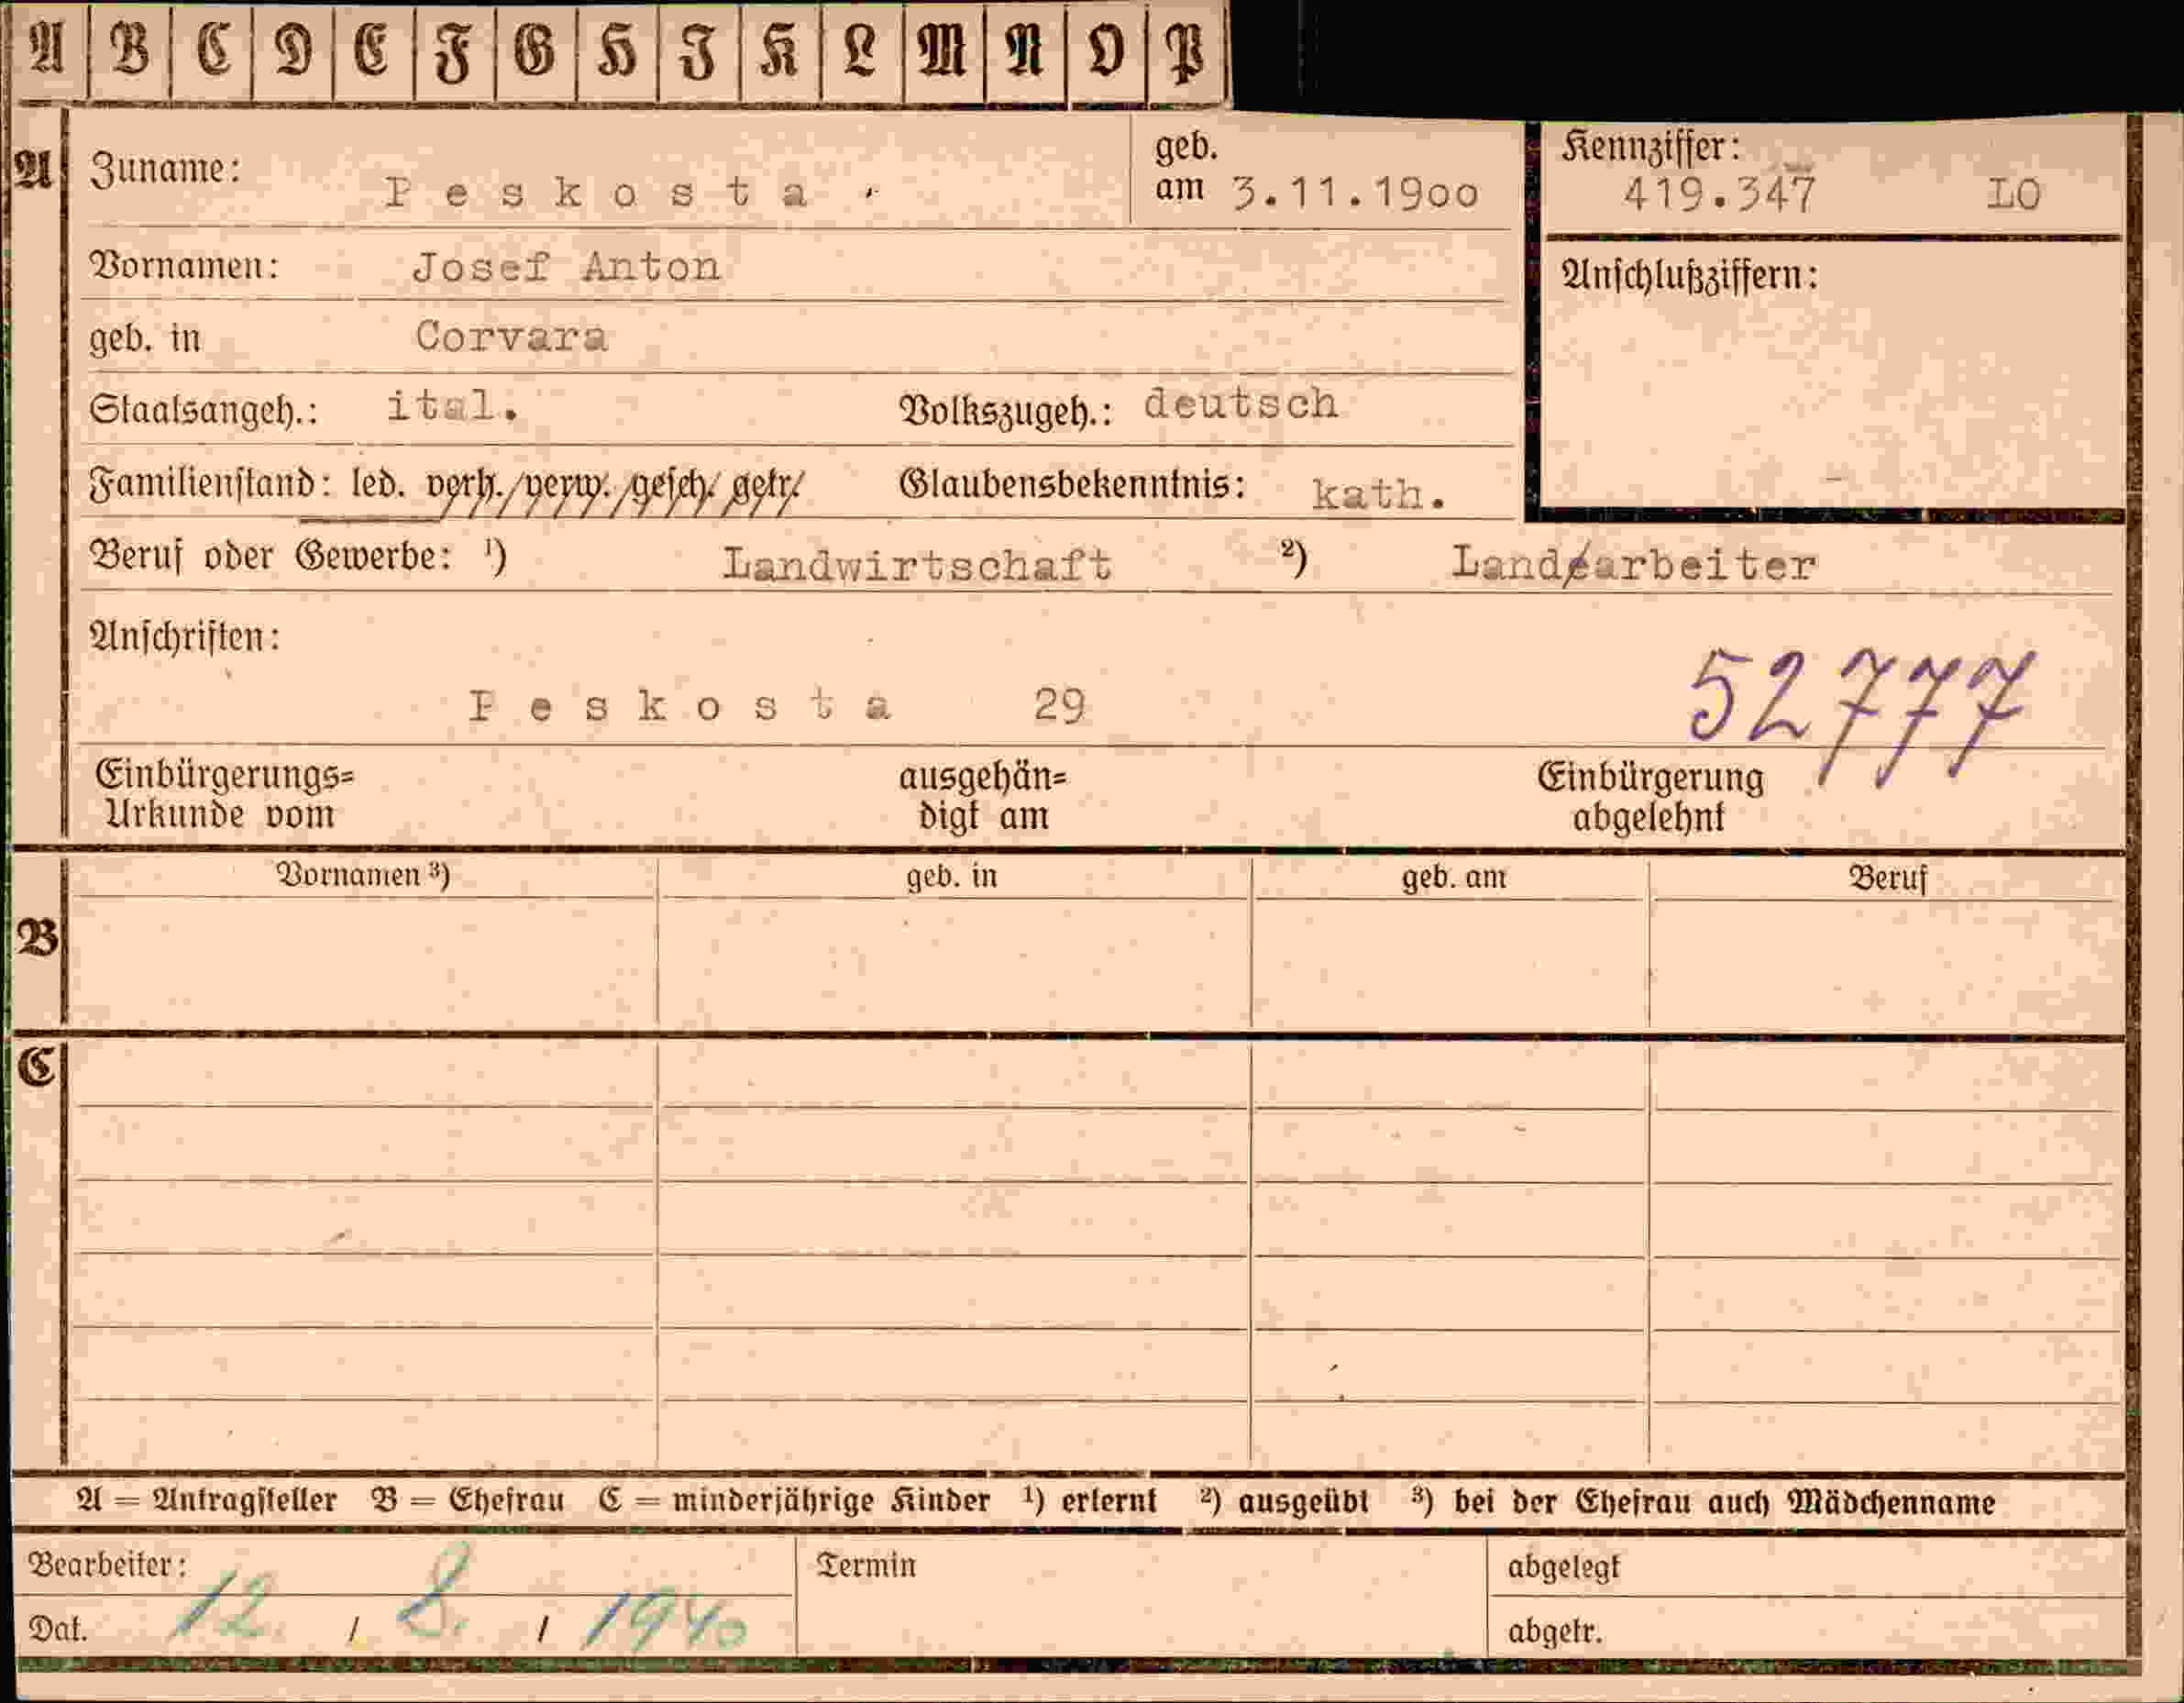 A B C D E F G H I K L M N O P
A Zuname: Peskosta. geb. am 3.11.1900 Kennziffer: 419.347 LO
Vornamen: Josef Anton Anschlußziffern:
geb. in Corvara
Staatsangeh.: ital. Volkszugeh.: deutsch
Familienstand: led. verh./verw./gesch./getr. Glaubensbekenntnis: kath.
Beruf oder Gewerbe: ¹) Landwirtschaft ²) Landarbeiter
Anschriften:
Peskosta 29 52777
Einbürgerungs= ausgehän= Einbürgerung
Urkunde vom digt am abgelehnt
Vornamen ³) geb. in geb. am Beruf
B
C
A = Antragsteller B = Ehefrau C = minderjährige Kinder ¹) erlernt ²) ausgeübt ³) bei der Ehefrau auch Mädchenname
Bearbeiter: Termin abgelegt
Dat. 12. / 8. / 1940 abgetr.